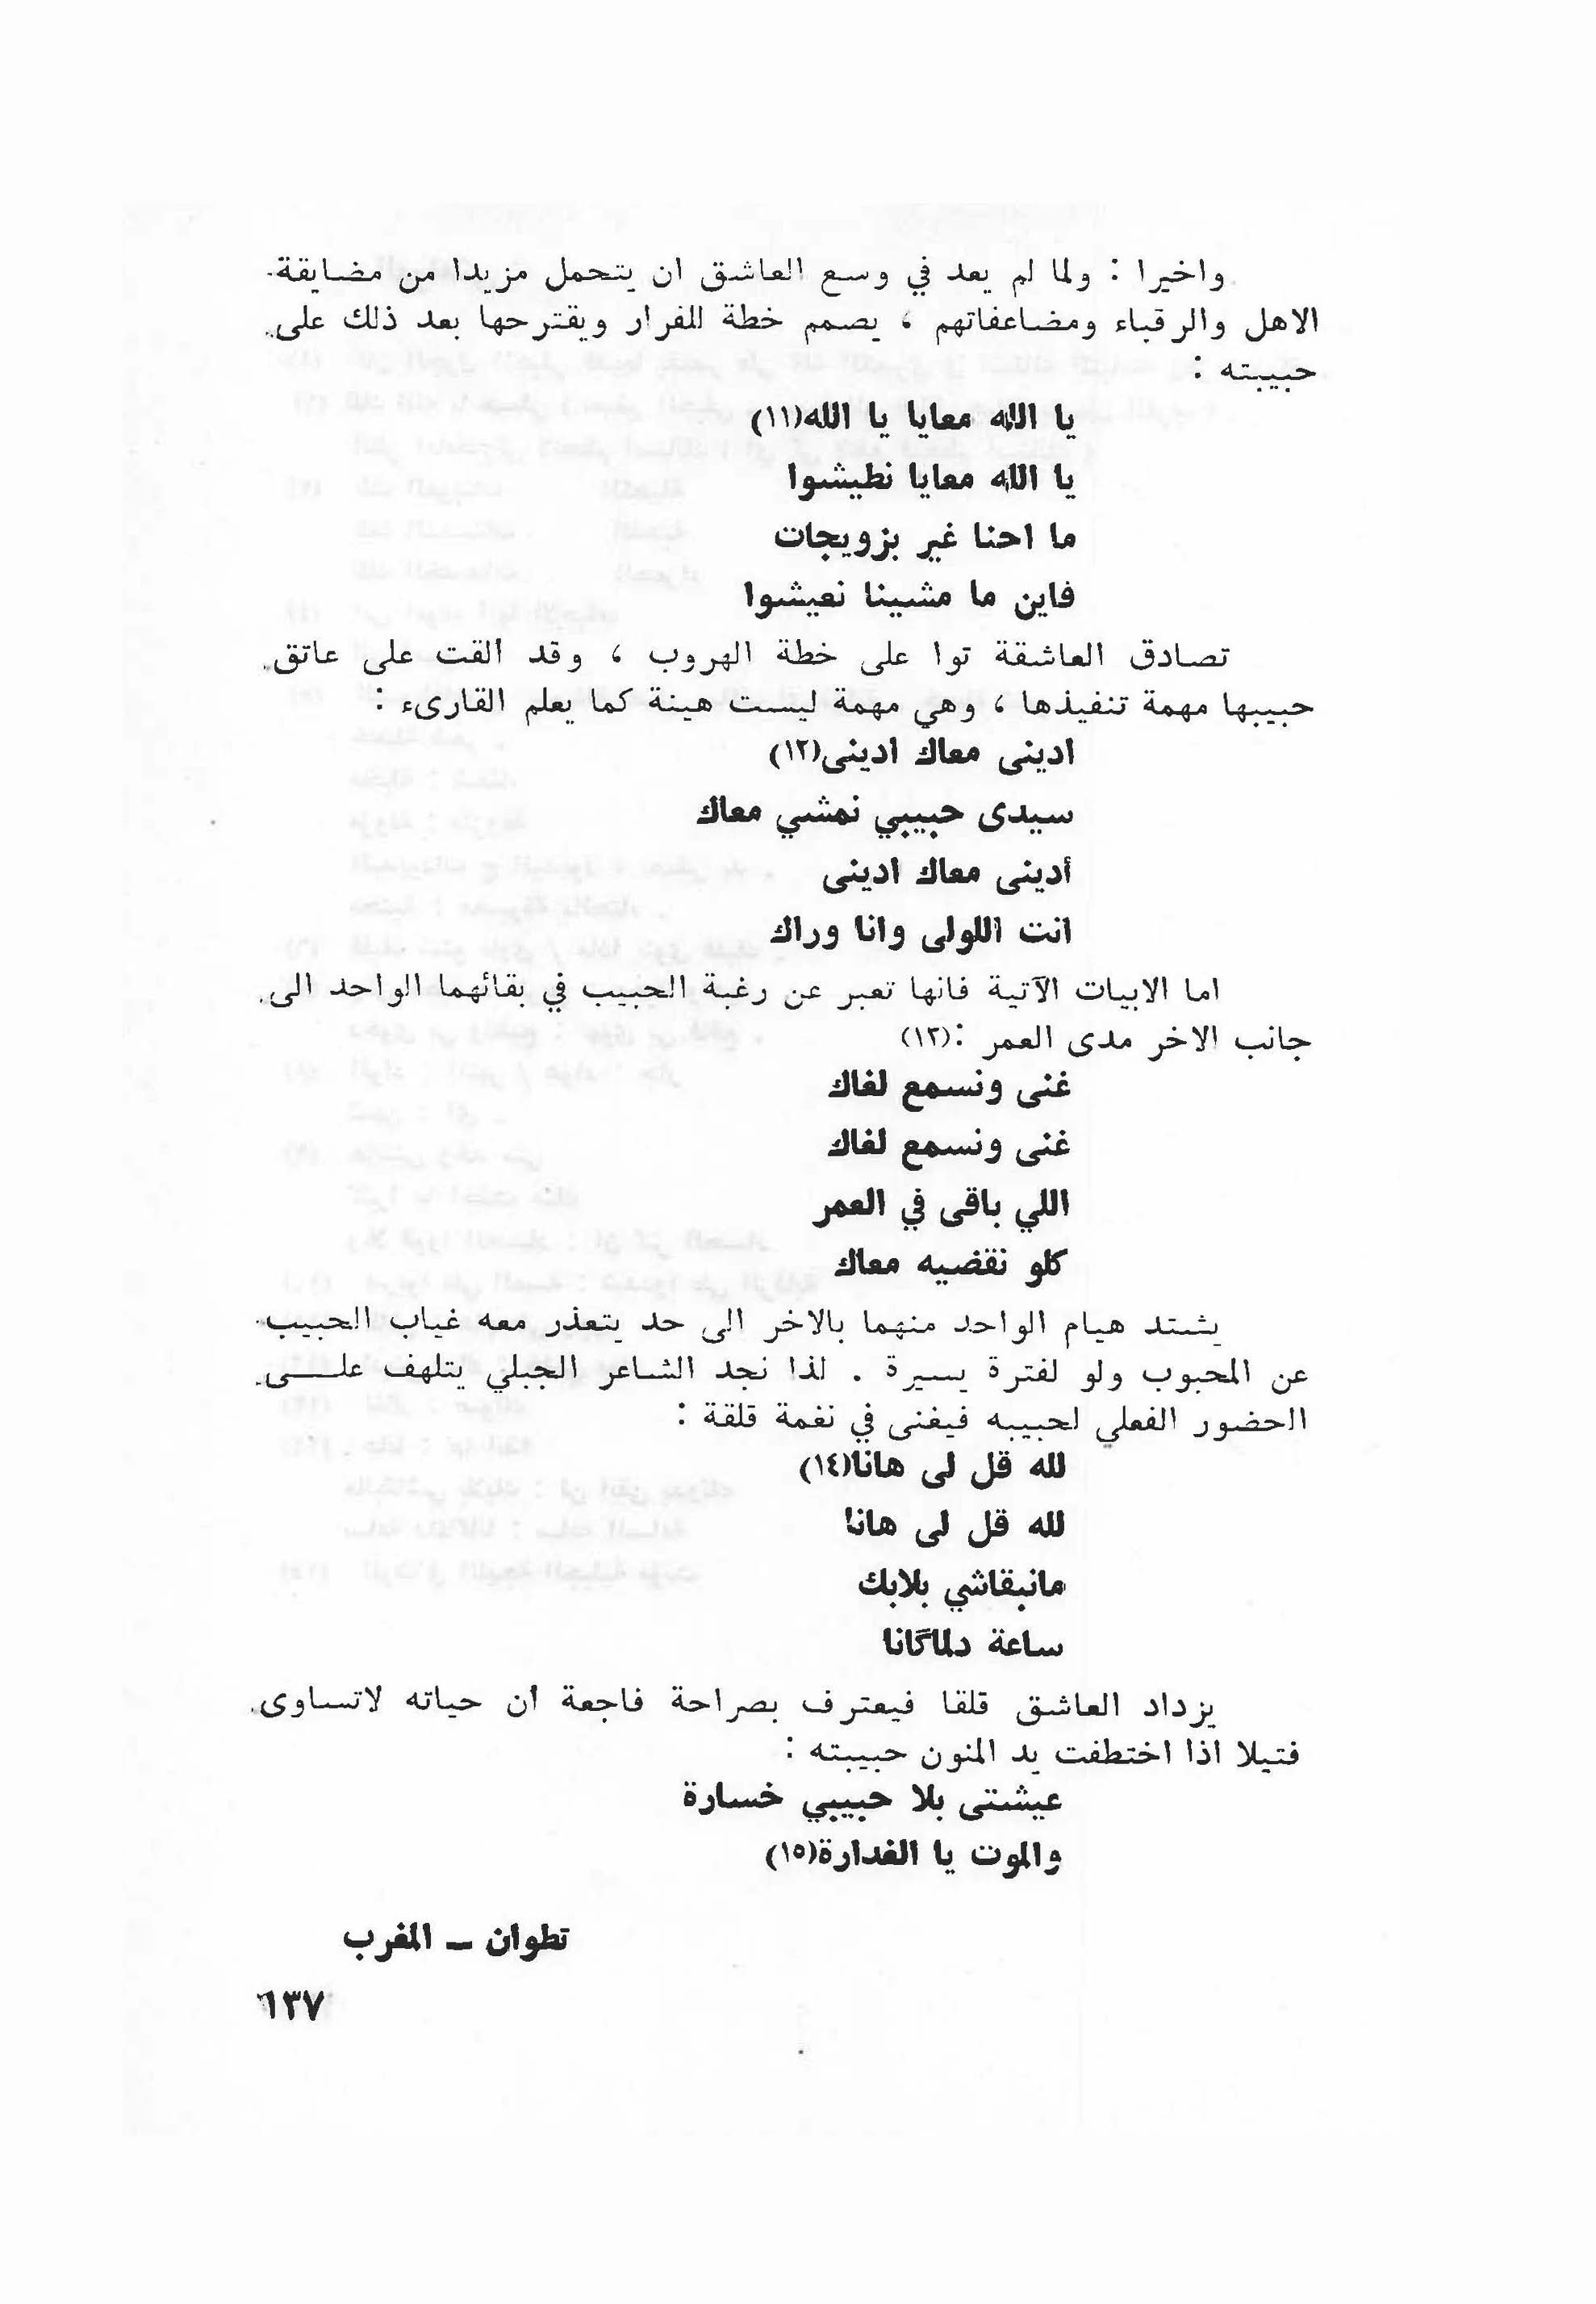 واخيرا : ولما لم يعد في وسع العاشق ان يتحمل مزيدا من مضايقة
الاهل والرقباء ومضاعفاتهم ، يصمم خطة للفرار ويقترحها بعد ذلك على
حبيبته :
يا الله معايا يا الله(١١)
يا الله معايا نطيشوا
ما احنا غير بزويجات
فاين ما مشينا نعيشوا
تصادق العاشقة توا على خطة الهروب ، وقد القت على عاتق
حبيبها مهمة تنفيذها ، وهي مهمة ليست هينة كما يعلم القارىء :
ادينى معاك ادينى(١٢)
سيدى حبيبي نمشي معاك
أدينى معاك ادينى
انت اللولى وانا وراك
اما الابيات الآتية فانها تعبر عن رغبة الحبيب في بقائهما الواحد الى
جانب الاخر مدى العمر :(١٣)
غنى ونسمع لغاك
غنى ونسمع لغاك
اللي باقى في العمر
كلو نقضيه معاك
يشتد هيام الواحد منهما بالاخر الى حد يتعذر معه غياب الحبيب
عن المحبوب ولو لفترة يسيرة . لذا نجد الشاعر الجبلي يتلهف علــى
الحضور الفعلي لحبيبه فيغنى في نغمة قلقة :
لله قل لى هانا(١٤)
لله قل لى هانا
مانبقاشي بلابك
ساعة دلماگانا
يزداد العاشق قلقا فيعترف بصراحة فاجعة أن حياته لاتساوى
فتيلا اذا اختطفت يد المنون حبيبته :
عيشتى بلا حبيبي خسارة
والموت يا الغدارة(١٥)
تطوان – المغرب
١٣٧